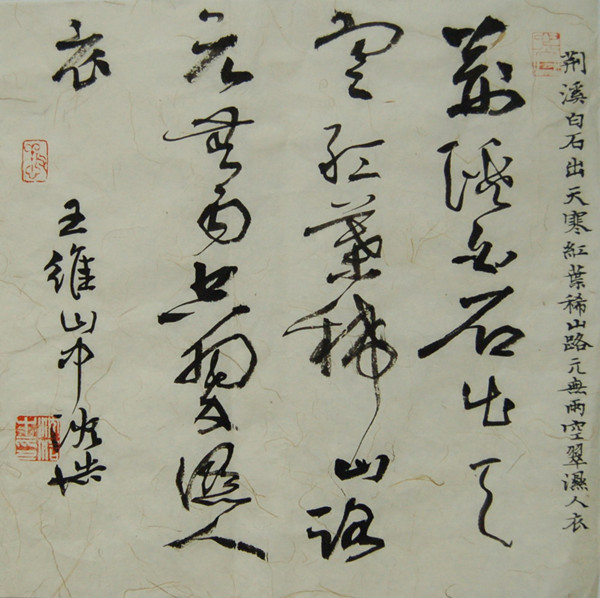 荆溪白石出天寒紅葉稀山路元無雨空翠濕人衣
荆溪白石出天
寒紅葉稀山路
元無雨空翠濕人
衣
王維山中